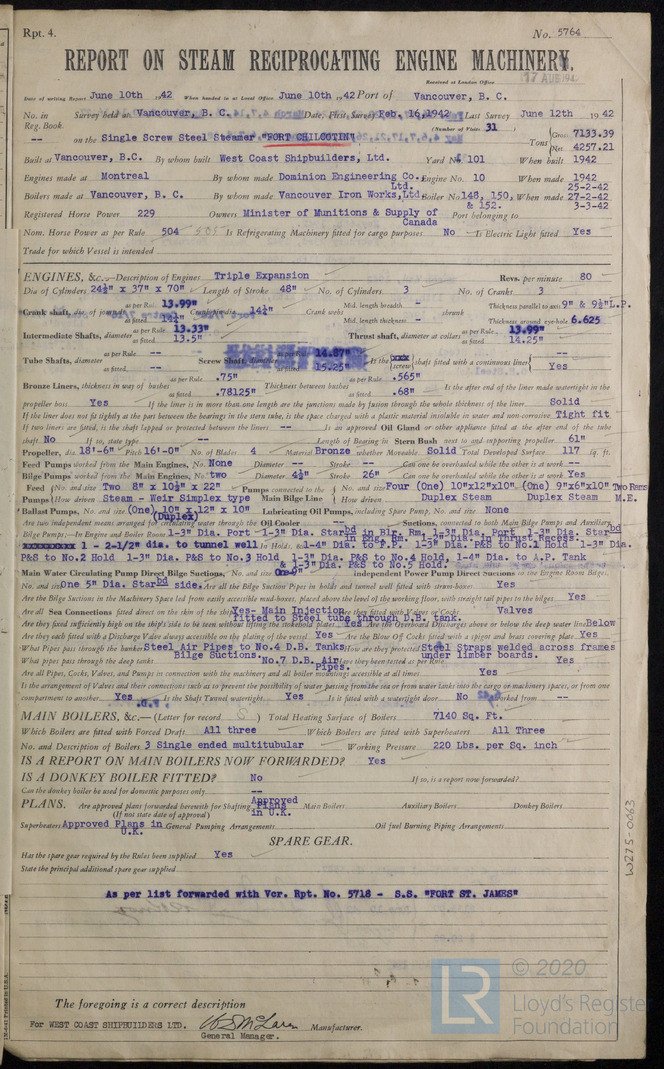 Rpt. 4.
No. 5764
REPORT ON STEAM RECIPROCATING ENGINE MACHINERY.
Received at London Office 17 AUG 194
Date of writing Report June 10th 1942 When handed in at Local Office June 10th 1942 Port of Vancouver, B. C.
No. in Survey held at Vancouver, B. C. Date, First Survey Feb. 16, 1942 Last Survey June 12th 1942
Reg. Book. (Number of Visits 31
-- on the Single Screw Steel Steamer "FORT CHILCOTIN" Tons Gross 7133.39
Net 4257.21
Built at Vancouver, B.C. By whom built West Coast Shipbuilders, Ltd. Yard No. 101 When built 1942
Engines made at Montreal By whom made Dominion Engineering Co., Ltd. Engine No. 10 When made 1942
Boilers made at Vancouver, B. C. By whom made Vancouver Iron Works, Ltd. Boiler No. 148, 150, & 152. When made 25-2-42 27-2-42 3-3-42
Registered Horse Power 229 Owners Minister of Munitions & Supply of Canada Port belonging to
Nom. Horse Power as per Rule 504 505 Is Refrigerating Machinery fitted for cargo purposes No Is Electric Light fitted Yes
Trade for which Vessel is intended
ENGINES, &c.—Description of Engines Triple Expansion Revs. per minute 80
Dia of Cylinders 24½" x 37" x 70" Length of Stroke 48" No. of Cylinders 3 No. of Cranks 3
Crank shaft, dia of journals as per Rule 13.99" as fitted 14¼" Crank pin dia 14¼" Crank webs Mid. length breadth - Mid. length thickness - shrunk Thickness parallel to axis 9" & 9½" L.P. Thickness around eye hole 6.625
Intermediate Shafts, diameter as per Rule 13.33" as fitted 13.5" Thrust shaft, diameter at collars as per Rule 13.99" as fitted 14.25"
Tube Shafts, diameter as per Rule -- as fitted -- Screw Shaft, diameter as per Rule 14.87" as fitted 15.25" Is the (screw) shaft fitted with a continuous liner -- Yes
Bronze Liners, thickness in way of bushes as per Rule .75" as fitted .78125" Thickness between bushes as per Rule .565" as fitted .68" Is the after end of the liner made watertight in the
propeller boss Yes If the liner is in more than one length are the junctions made by fusion through the whole thickness of the liner Solid
If the liner does not fit tightly at the part between the bearings in the stern tube, is the space charged with a plastic material insoluble in water and non-corrosive Tight fit
If two liners are fitted, is the shaft lapped or protected between the liners -- Is an approved Oil Gland or other appliance fitted at the after end of the tube
shaft No If so, state type -- Length of Bearing in Stern Bush next to and supporting propeller 61"
Propeller, dia 18'-6" Pitch 16'-0" No. of Blades 4 Material Bronze whether Moveable Solid Total Developed Surface 117 sq. ft.
Feed Pumps worked from the Main Engines, No. None Diameter -- Stroke -- Can one be overhauled while the other is at work --
Bilge Pumps worked from the Main Engines, No. two Diameter 4½" Stroke 26" Can one be overhauled while the other is at work Yes
Feed Pumps No. and size Two 8" x 10½" x 22" How driven Steam - Weir Simplex type Pumps connected to the Main Bilge Line No. and size Four (One) 10"x12"x10" (One) 9"x6"x10" Two Rams How driven Duplex Steam Duplex Steam M.E.
Ballast Pumps, No. and size (One) 10" x 12" x 10" (Duplex) Lubricating Oil Pumps, including Spare Pump, No. and size None
Are two independent means arranged for circulating water through the Oil Cooler -- Suctions, connected to both Main Bilge Pumps and Auxiliary
Bilge Pumps:—In Engine and Boiler Room 1-3" Dia. Port 1-3" Dia. Starbd in Blr. Rm. 1-3" Dia. Port 1-3" Dia. Starbd in Eng. Rm. 1-2" Dia. in thrust Recess.
1 - 2-1/2" dia. to tunnel well In Holds, &c. 1-4" Dia. to F.P. 1-3" Dia. P&S to No.1 Hold 1-3" Dia.
P&S to No.2 Hold 1-3" Dia. P&S to No.3 Hold 1-3" Dia. P&S to No.4 Hold, 1-4" Dia. to A.P. Tank
& 1-3" Dia. P&S to No.5 Hold.
Main Water Circulating Pump Direct Bilge Suctions, No. and size independent Power Pump Direct Suctions to the Engine Room Bilge.
No. and size One 5" Dia. Starbd side. Are all the Bilge Suction Pipes in holds and tunnel well fitted with strum-boxes Yes
Are the Bilge Suctions in the Machinery Space led from easily accessible mud-boxes, placed above the level of the working floor, with straight tail pipes to the bilges Yes
Are all Sea Connections fitted direct on the skin of the ship Yes- Main Injection fitted to Steel tube through D.B. tank. Are they fitted with Valves or Cocks Valves
Are they fixed sufficiently high on the ship's side to be seen without lifting the stokehold plates Yes Are the Overboard Discharges above or below the deep water line Below
Are they each fitted with a Discharge Valve always accessible on the plating of the vessel Yes Are the Blow Off Cocks fitted with a spigot and brass covering plate Yes
What Pipes pass through the bunkers Steel Air Pipes to No.4 D.B. Tanks Bilge Suctions How are they protected Steel Straps welded across frames under limber boards.
What pipes pass through the deep tanks No.7 D.B. Air Pipes. Have they been tested as per Rule Yes
Are all Pipes, Cocks, Valves, and Pumps in connection with the machinery and all boiler mountings accessible at all times Yes
Is the arrangement of Valves and their connections such as to prevent the possibility of water passing from the sea or from water tanks into the cargo or machinery spaces, or from one
compartment to another Yes Is the Shaft Tunnel watertight Yes Is it fitted with a watertight door No worked from --
MAIN BOILERS, &c.—(Letter for record S ) Total Heating Surface of Boilers 7140 Sq. Ft.
Which Boilers are fitted with Forced Draft All three Which Boilers are fitted with Superheaters All Three
No. and Description of Boilers 3 Single ended multitubular Working Pressure 220 Lbs. per Sq. inch
IS A REPORT ON MAIN BOILERS NOW FORWARDED? Yes
IS A DONKEY BOILER FITTED? No If so, is a report now forwarded?
Can the donkey boiler be used for domestic purposes only --
PLANS. Are approved plans forwarded herewith for Shafting Approved Plans in U.K. Main Boilers Auxiliary Boilers Donkey Boilers
(If not state date of approval)
Superheaters Approved Plans in U.K. General Pumping Arrangements Oil fuel Burning Piping Arrangements
SPARE GEAR.
Has the spare gear required by the Rules been supplied Yes
State the principal additional spare gear supplied
As per list forwarded with Vcr. Rpt. No. 5718 - S.S. "FORT ST. JAMES"
W275-0063
The foregoing is a correct description
For WEST COAST SHIPBUILDERS LTD. W.S. McLaren Manufacturer.
General Manager.
LR © 2020
Lloyd's Register
Foundation